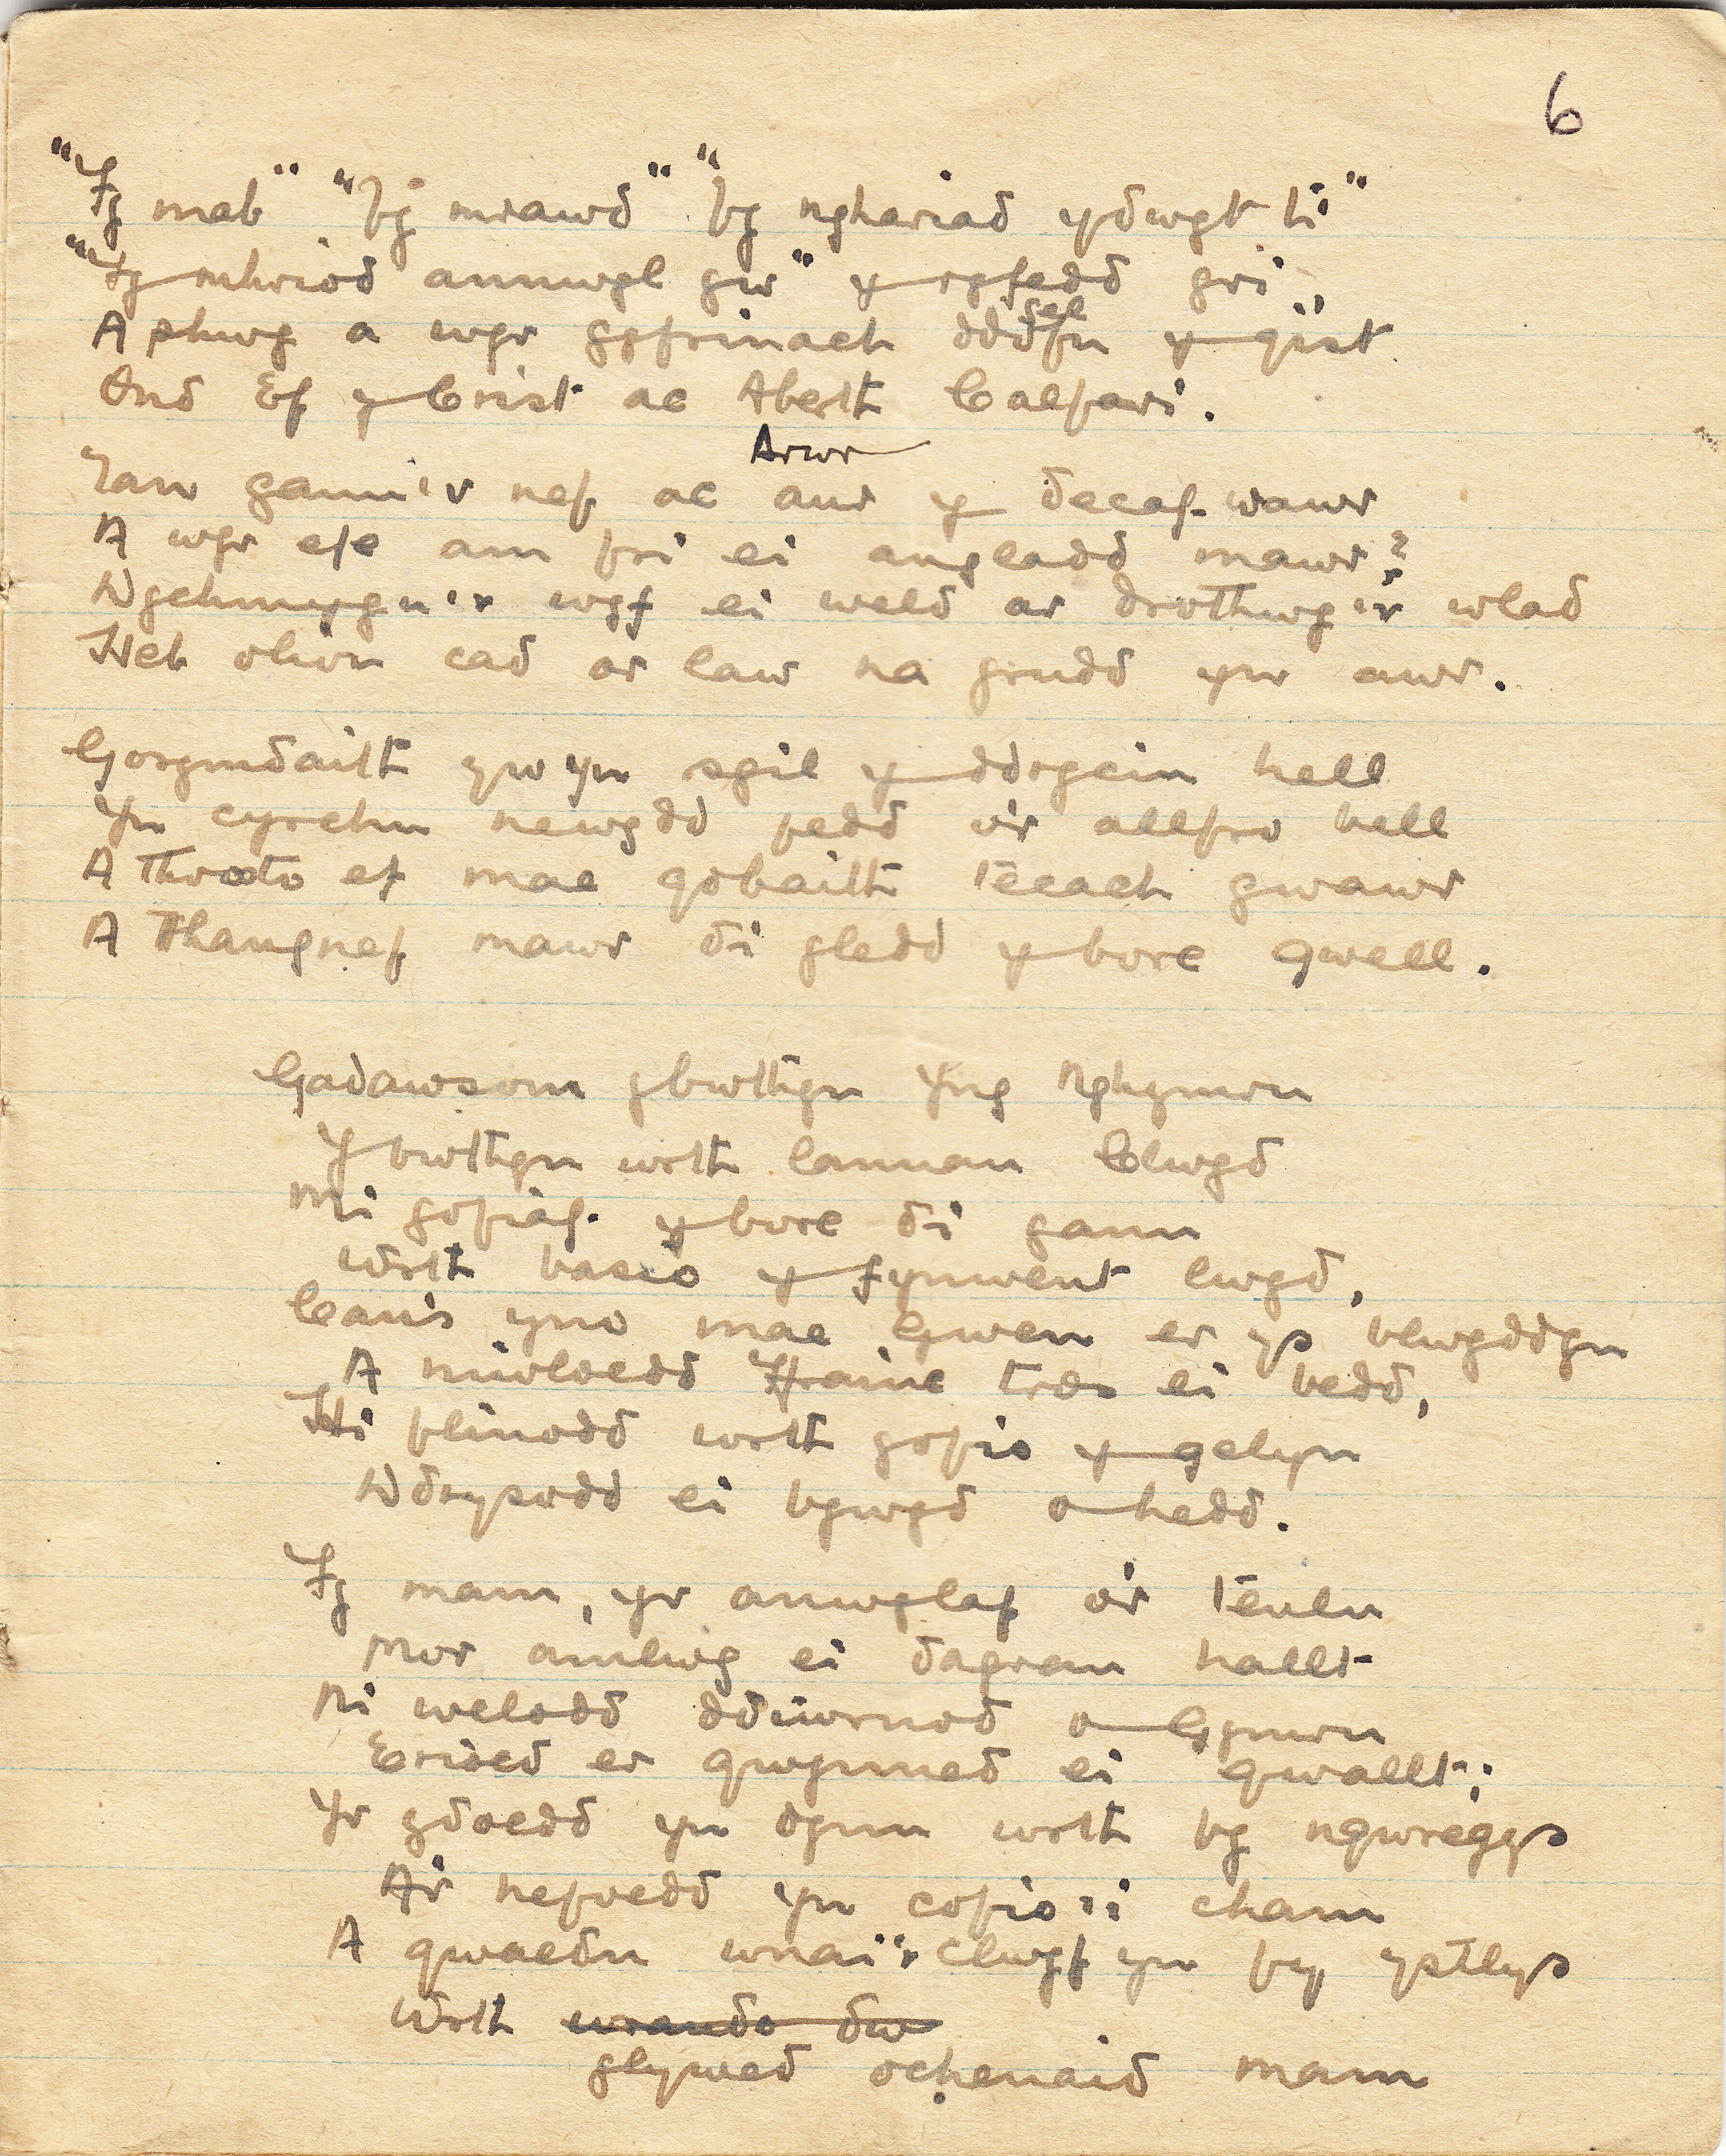 6
"Fy mab" "fy mrawd" "fy nghariad ydwyt ti"
"Fy mhriod annwyl yw" y rhyfedd gri,
A phwy a wyr gyfrinach ddofn y gist
sel
Ond Ef y Crist ac Aberth Calfari.
Arwr
Tan gannu'r nef ac aur y decaf wawr
A wyr efe am fri ei angladd mawr?
Dychmygu'r wyf ei weld ar drothwy'r wlad
Heb olion cad ar law na grudd yw awr.
Gorymdaith yw yn sgil y ddrycin hell
Yn cyrchu newydd fedd o'r allfro bell
A throsto ef mae gobaith tecach gwawr
A Thangnef mawr di gledd y bore gwell.
Gadawsom y bwthyn yng Nghymru
Y bwthyn wrth lannau Clwyd
Mi gofiaf y bore di gann
Wrth basio y fynwent lwyd,
Canis yno mae Gwen er ys blwyddyn
A miloedd Ffrainc tros ei bedd,
Hi flinodd wrth gofio y gelyn
Ddrysodd ei bywyd o hedd.
Fy mam, yr anwylaf o'r teulu
Mor amlwg ei dagrau hallt
Ni welodd ddiwrnod o Gymru
Erioed er gwynned ei gwallt;
Yr ydoedd yn dynn wrth fy ngwregys
A'r nefoedd yn cofio'i cham
A gwaedu wnai'r clwyf yn fy ystlys
Wrth wrando dw
glywed ochenaid mam